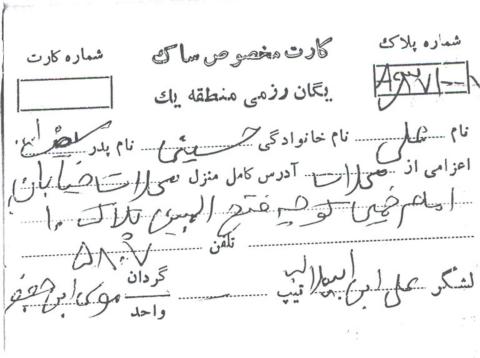 شماره کارت کارت مخصوص ساک شماره پلاک
یگان رزمی منطقه یک
نام علی نام خانوادگی حسینی نام پدر
اعزامی از محلات آدرس کامل منزل محلات خیابان
امام خمینی کوچه فتح المبین پلاک ۱۰
تلفن ۵۸۰۷
لشگر علی ابن ابیطالب تیپ گردان موسی ابن جعفر
واحد